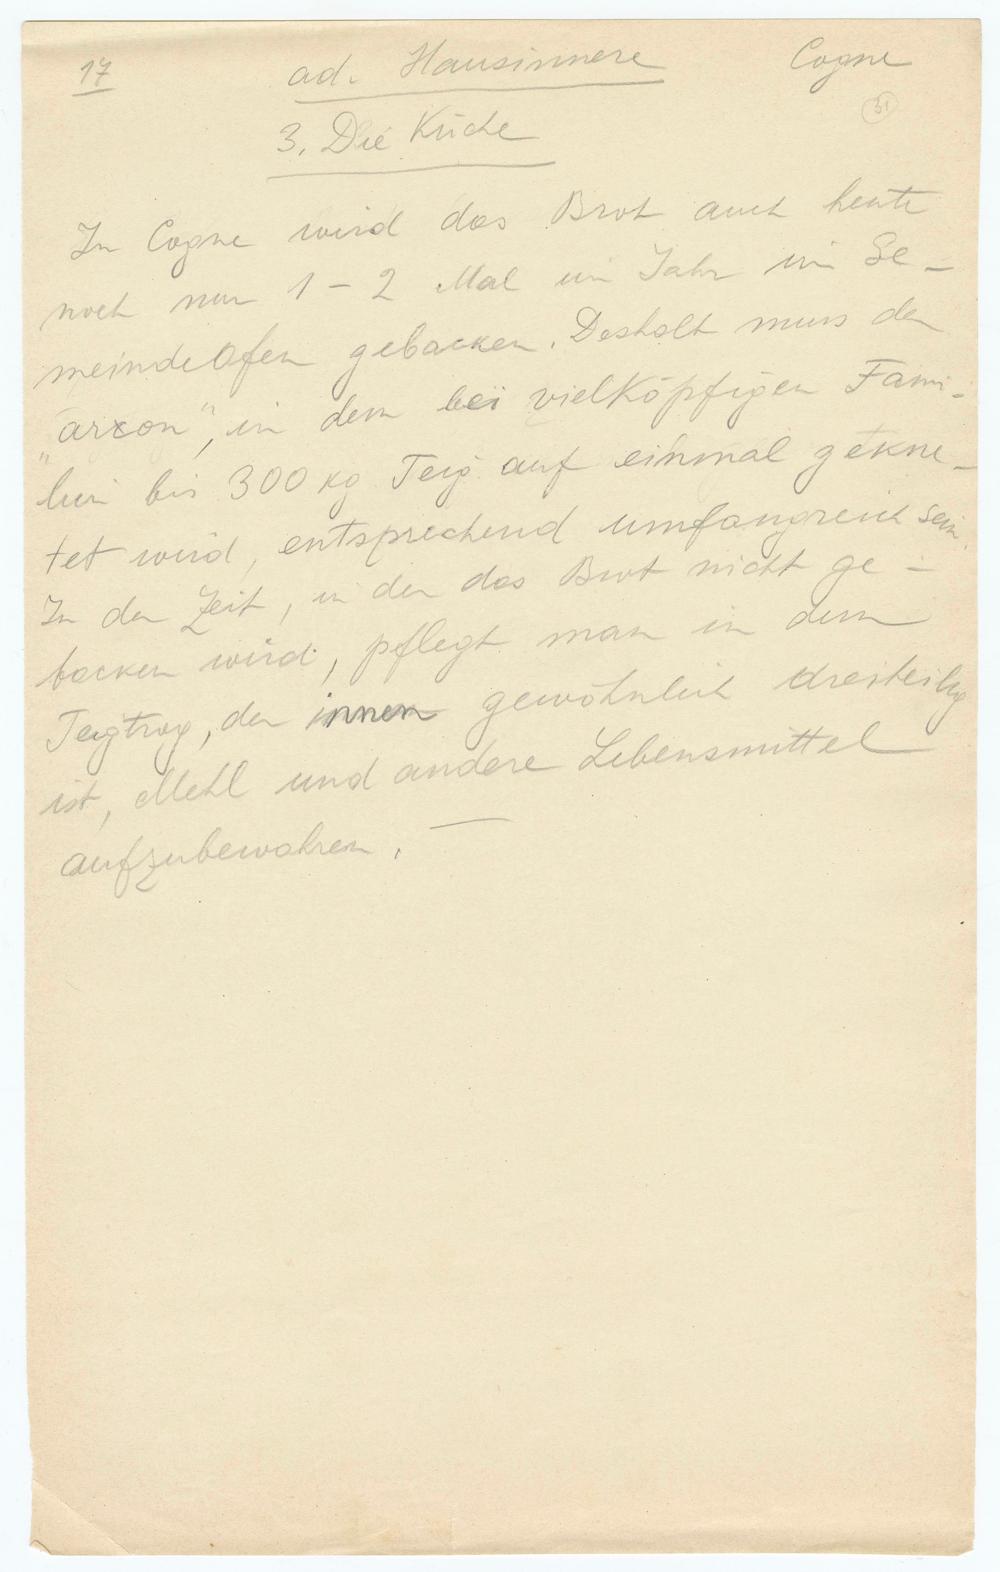 17 ad. Hausinnere Cogne
31
3. Die Küche
In Cogne wird das Brot auch heute
noch nur 1-2 Mal im Jahr im Ge-
meindeofen gebacken. Deshalb muss der
"arcon", in dem bei vielköpfigen Fami-
lien bis 300 kg Teig auf einmal gekne-
tet wird, entsprechend umfangreich sein.
In der Zeit, in der das Brot nicht ge-
backen wird, pflegt man in dem
Teigtrog, der innen gewöhnlich dreiteilig
ist, Mehl und andere Lebensmittel
aufzubewahren. —